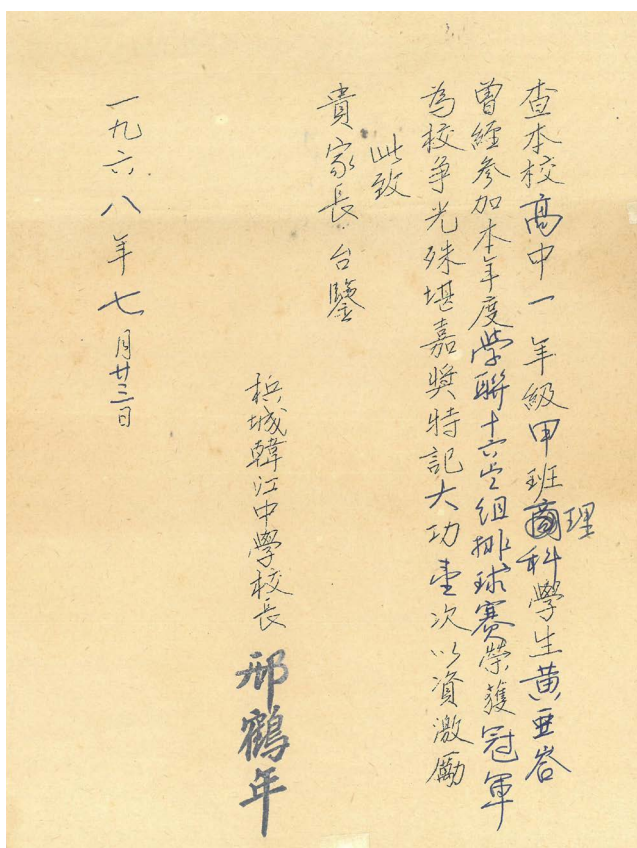 查本校高中一年級甲班理科學生黄亚峇
曾經参加本年度學聯十六岁组排球赛榮獲冠軍
為校争光殊堪嘉獎特記大功壹次以資激勵
此致
貴家長台鑒
檳城韓江中學校長邢鶴年
一九六八年七月廿三日